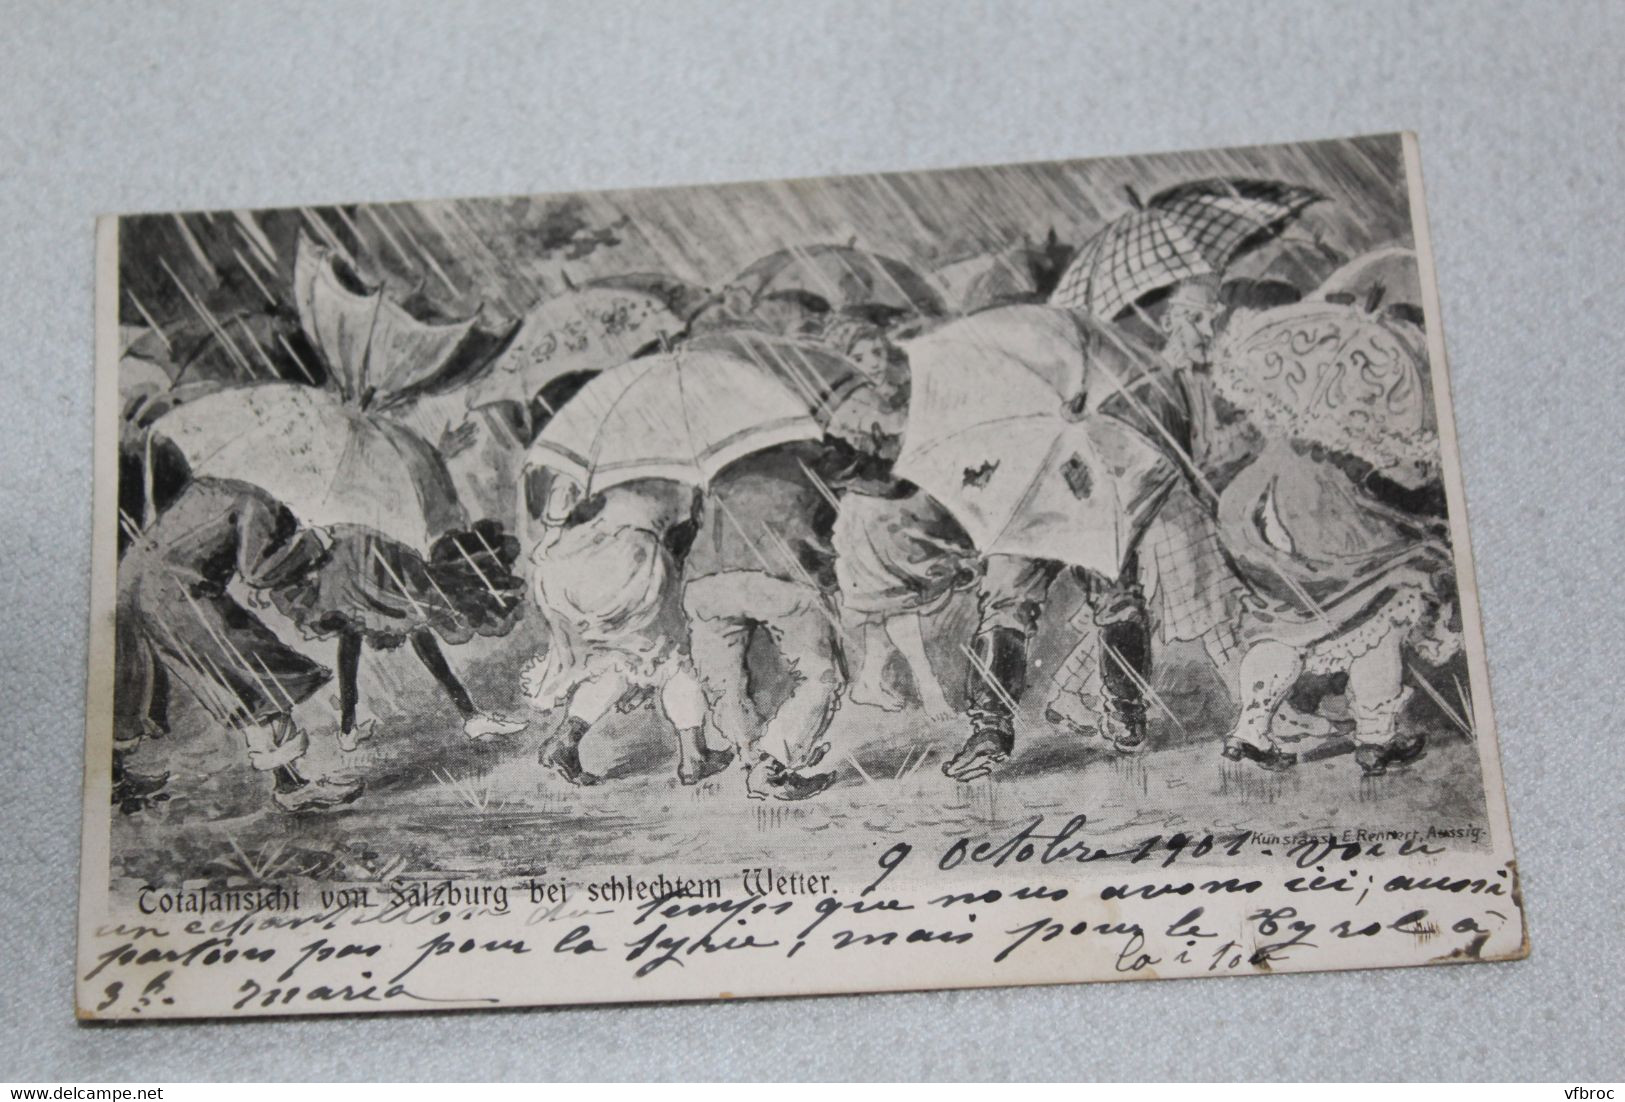 Kunstanst. E. Rennert, Aussig.
Totalansicht von Salzburg bei schlechtem Wetter.
9 Octobre 1901. Voici
un échantillon du temps que nous avons ici; aussi
partons pas pour la Syrie, mais pour le Tyrol à
3h. Maria
delcampe.net
vfbroc